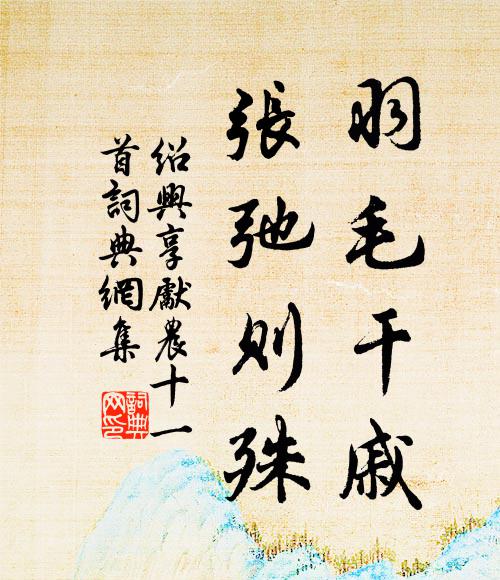 羽毛干戚
張弛则殊
绍興享獻農十一
首詞典網集
詞典
网印